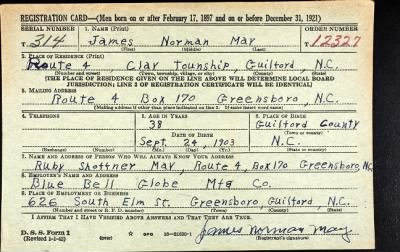 REGISTRATION CARD—(Men born on or after February 17, 1897 and on or before December 31, 1921)
SERIAL NUMBER 1. NAME (Print) ORDER NUMBER
T. 314 James Norman May T. 12327
(First) (Middle) (Last)
2. PLACE OF RESIDENCE (Print)
Route 4 Clay Township, Guilford, N.C.
(Number and street) (Town, township, village, or city) (County) (State)
[THE PLACE OF RESIDENCE GIVEN ON THE LINE ABOVE WILL DETERMINE LOCAL BOARD
JURISDICTION; LINE 2 OF REGISTRATION CERTIFICATE WILL BE IDENTICAL]
3. MAILING ADDRESS
Route 4 Box 170 Greensboro, N.C.
[Mailing address if other than place indicated on line 2. If same insert word same]
4. TELEPHONE 5. AGE IN YEARS 6. PLACE OF BIRTH
38 Guilford County
DATE OF BIRTH (Town or county)
Sept. 24, 1903 N.C.
(Exchange) (Number) (Mo.) (Day) (Yr.) (State or country)
7. NAME AND ADDRESS OF PERSON WHO WILL ALWAYS KNOW YOUR ADDRESS
Ruby Shoffner May, Route 4, Box 170 Greensboro, N.C.
8. EMPLOYER'S NAME AND ADDRESS
Blue Bell Globe Mfg Co.
9. PLACE OF EMPLOYMENT OR BUSINESS
626 South Elm St. Greensboro, Guilford, N.C.
(Number and street or R. F. D. number) (Town) (County) (State)
I AFFIRM THAT I HAVE VERIFIED ABOVE ANSWERS AND THAT THEY ARE TRUE.
D. S. S. Form 1
(Revised 1-1-42) James Norman May
(Registrant's signature)